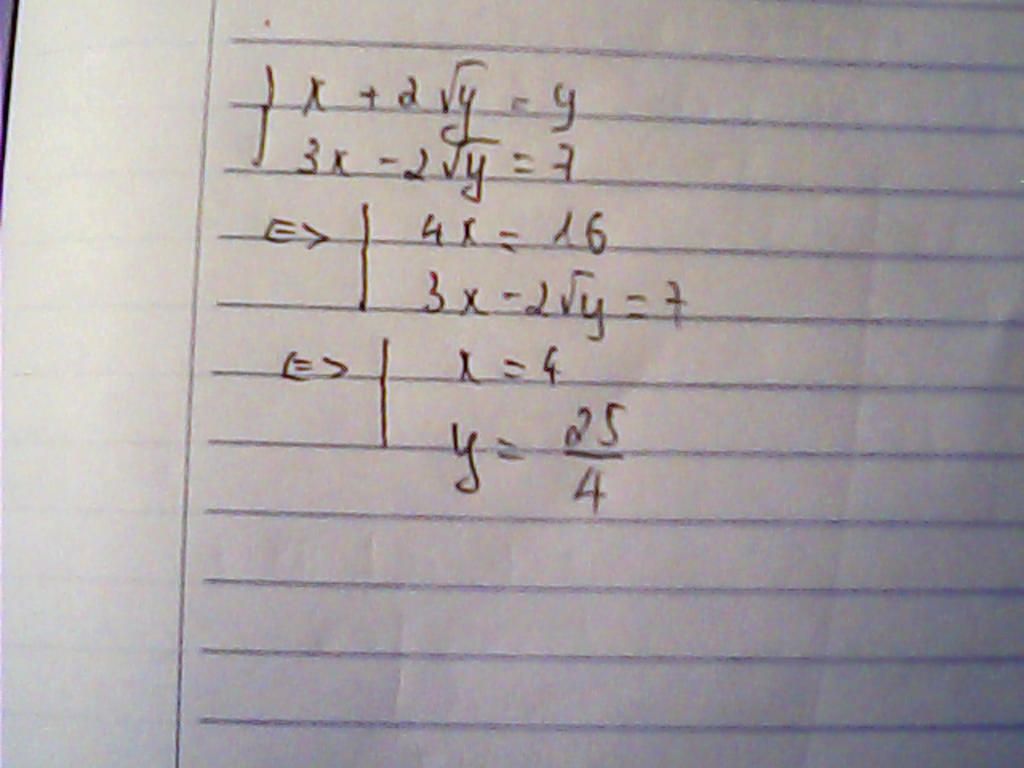 x + 2√y = y
3x - 2√y = 7
<=> 4x = 16
3x - 2√y = 7
<=> x = 4
y = 25/4